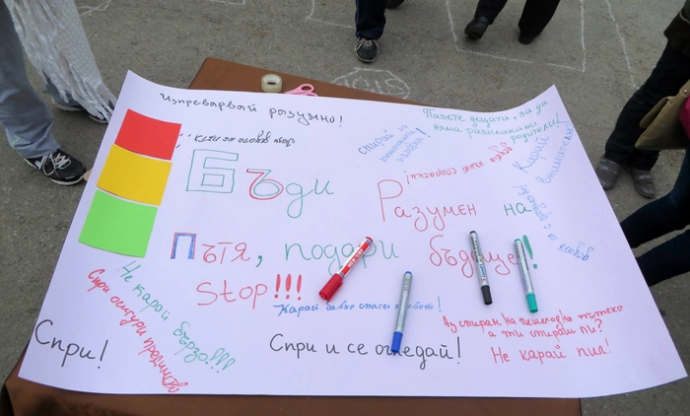 Изпреварвай разумно!
Пазете децата, за да
няма разплакани родители!
Спирай на
Карай
внимателно!
Бъди Разумен на
Пътя, подари бъдеще!
STOP!!!
Не карай бързо!!!
Спри осигури предимство
Карай бавно спаси живот!
Спри!
Спри и се огледай!
Аз спирам на пешеходна пътека
а ти спираш ли?
Не карай пил!